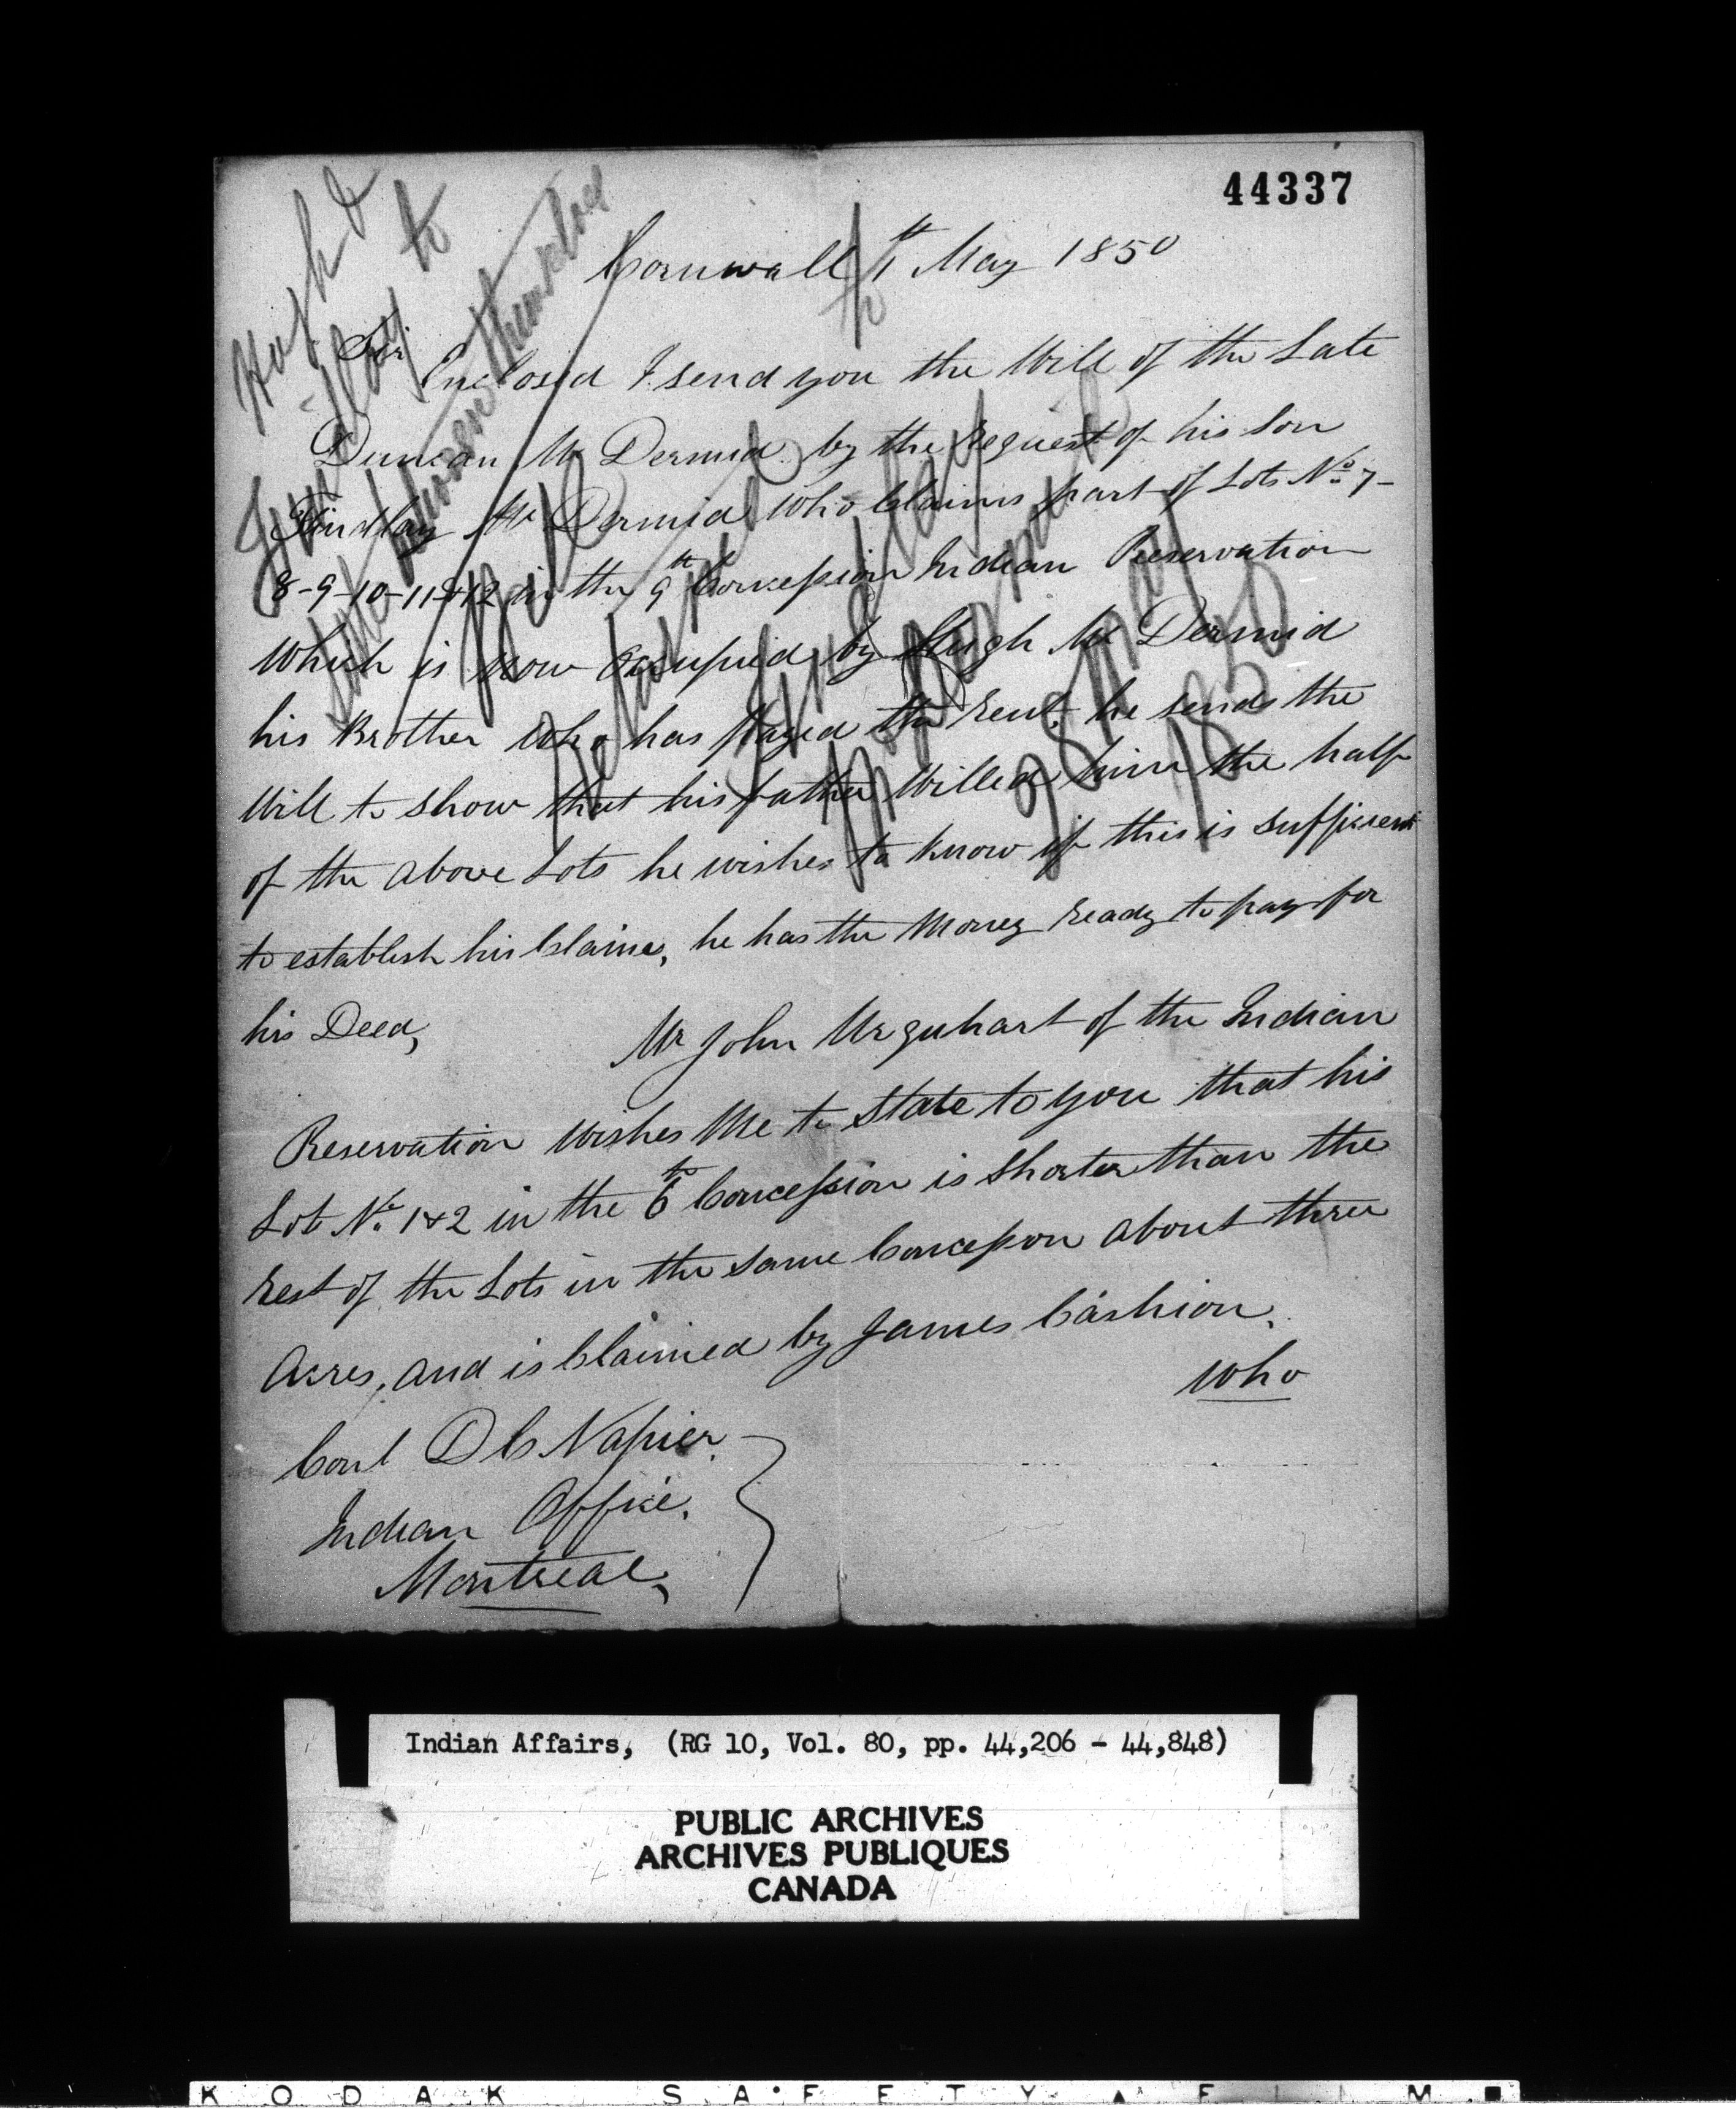 44337
Cornwall 1th May 1850
Sir
Enclosed I send you the Will of the Late
Duncan Mc Dermid by the request of his Son
Findlay Mc Dermid who Claims part of Lots No 7-
8-9-10-11&12 in the 9th Concession Indian Reservation
Which is now Occupied by Hugh Mc Dermid
his Brother who has payed the rent, he sends the
Will to show that his father Willed him the half
of the above Lots he wishes to know if this is sufficient
to establish his Claime, he has the Money ready to pay for
his Deed,
Mr John Urquhart of the Indian
Reservation wishes Me to State to you that his
Lot No. 1&2 in the 6th Concession is Shorter than the
rest of the Lots in the same Concession about three
Acres, and is Claimed by James Cashion.
who
Conl D C Napier
Indian Office.
Montreal,
Hugh &
Findlay to
themselves
Will
Returned
to Findlay
McDermid
28 May
1850
Indian Affairs, (RG 10, Vol. 80, pp. 44,206 - 44,848)
PUBLIC ARCHIVES
ARCHIVES PUBLIQUES
CANADA
KODAK SAFETY FILM